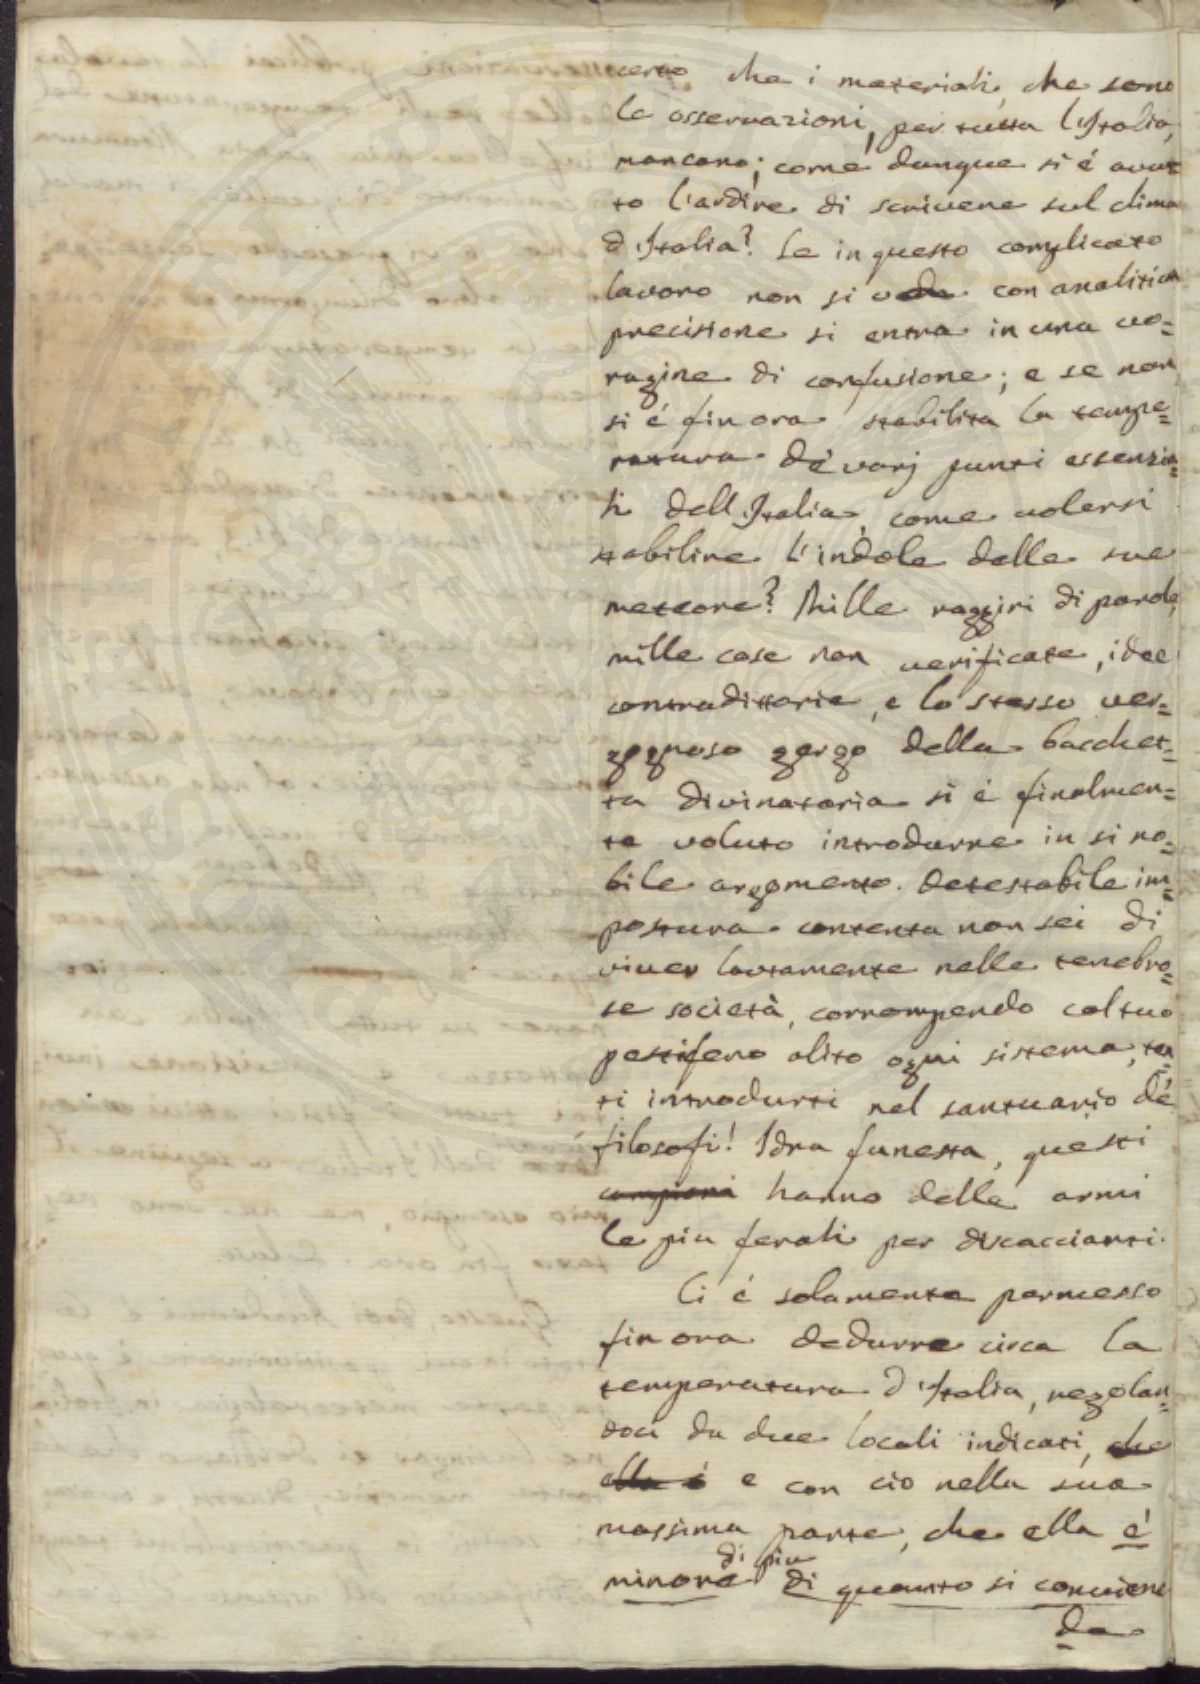 certo che i materiali, che sono
le osservazioni, per tutta l'Italia,
mancano; come dunque si é avu=
to l'ardire di scrivere sul clima
d'Italia? Se in questo complicato
lavoro non si vada con analitica
precisione si entra in una vo=
ragine di confusione; e se non
si é fin ora stabilita la tempe=
ratura de' varj punti essenzia=
li dell'Italia, come volersi
stabilire l'indole delle sue
meteore? Mille raggiri di parole,
mille cose non verificate, idee
contradittorie, e lo stesso ver=
gognoso gergo della bacchet=
ta divinatoria si é finalmen=
te voluto introdurre in si no=
bile argomento. Detestabile im=
postura contenta non sei di
viver lautamente nelle tenebro=
se società, corrompendo col tuo
pestifero alito ogni sistema, ten=
ti introdurti nel santuario de'
filosofi! Idra funesta, questi
campioni hanno delle armi
le piu ferali per discacciarti.
Ci é solamente permesso
fin ora dedurre circa la
temperatura d'Italia, regolan=
doci da due locali indicati, che
ella é e con cio nella sua
massima parte, che ella é
di piu
minore di quanto si conviene
da